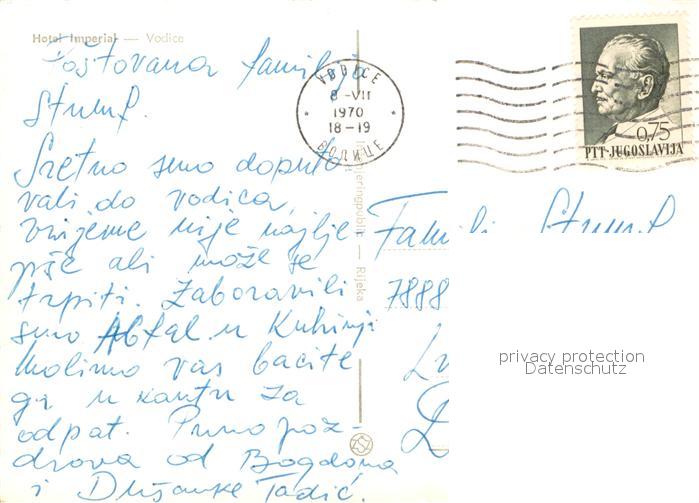 Hotel Imperial — Vodice
Poštovana familija
Strumf.
Sretno smo doputo
vali do vodica,
vrijeme nije najlje
pše ali može se
trpiti. Zaboravili
smo Abfal u Kuhinji
Molimo vas bacite
ga u kantu za
odpat. Puno poz-
drova od Bogdona
i Dušanke Tadić.
VODICE
8-VII
1970
18-19
ВОДИЦЕ
0,75
PTT JUGOSLAVIJA
— Rijeka
Famili Strumf
7888
privacy protection
Datenschutz